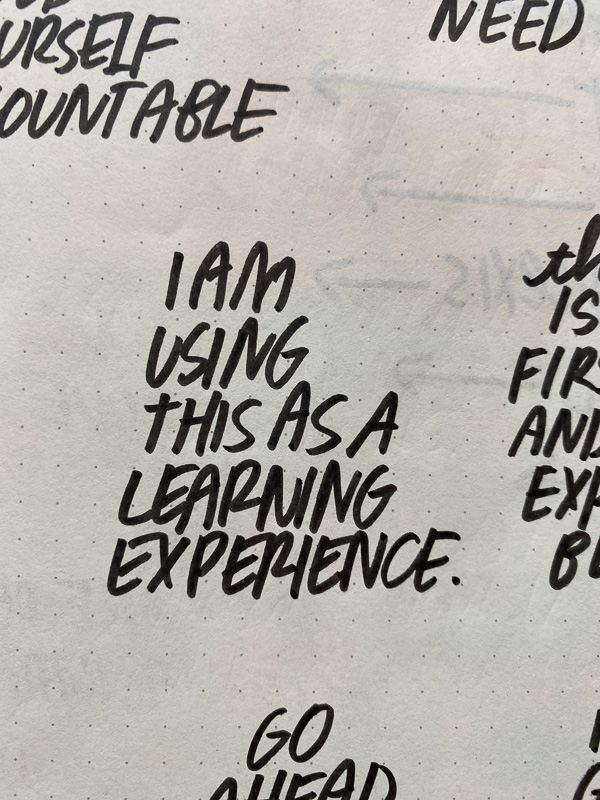 URSELF
OUNTABLE
NEED
I AM
USING
THIS AS A
LEARNING
EXPERIENCE.
IS
AND
GO
AHEAD